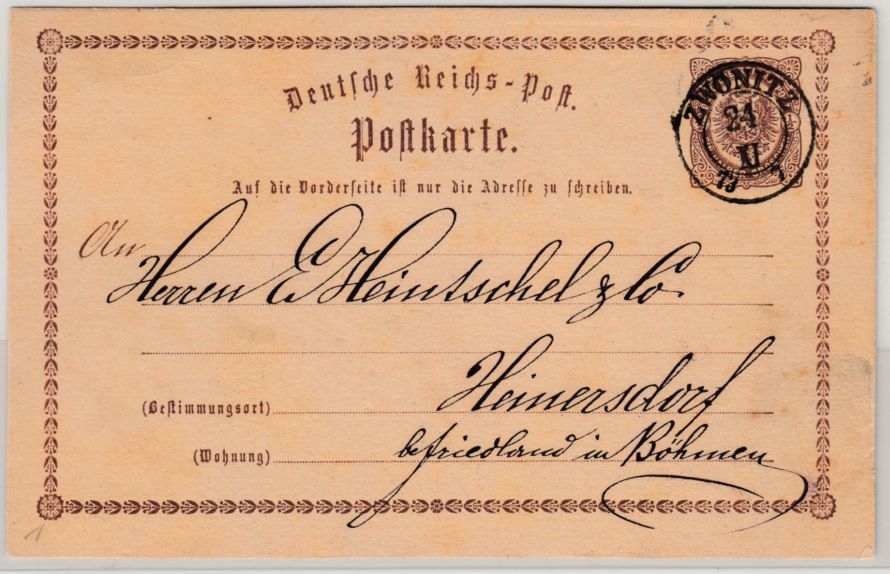 Deutsche Reichs-Post.
Postkarte.
Auf die Vorderseite ist nur die Adresse zu schreiben.
ZWÖNITZ
24
XI
73 7
An
Herren E. Heintschel & Co.
Heinersdorf
(Bestimmungsort)
b/friedland in Böhmen
(Wohnung)
1